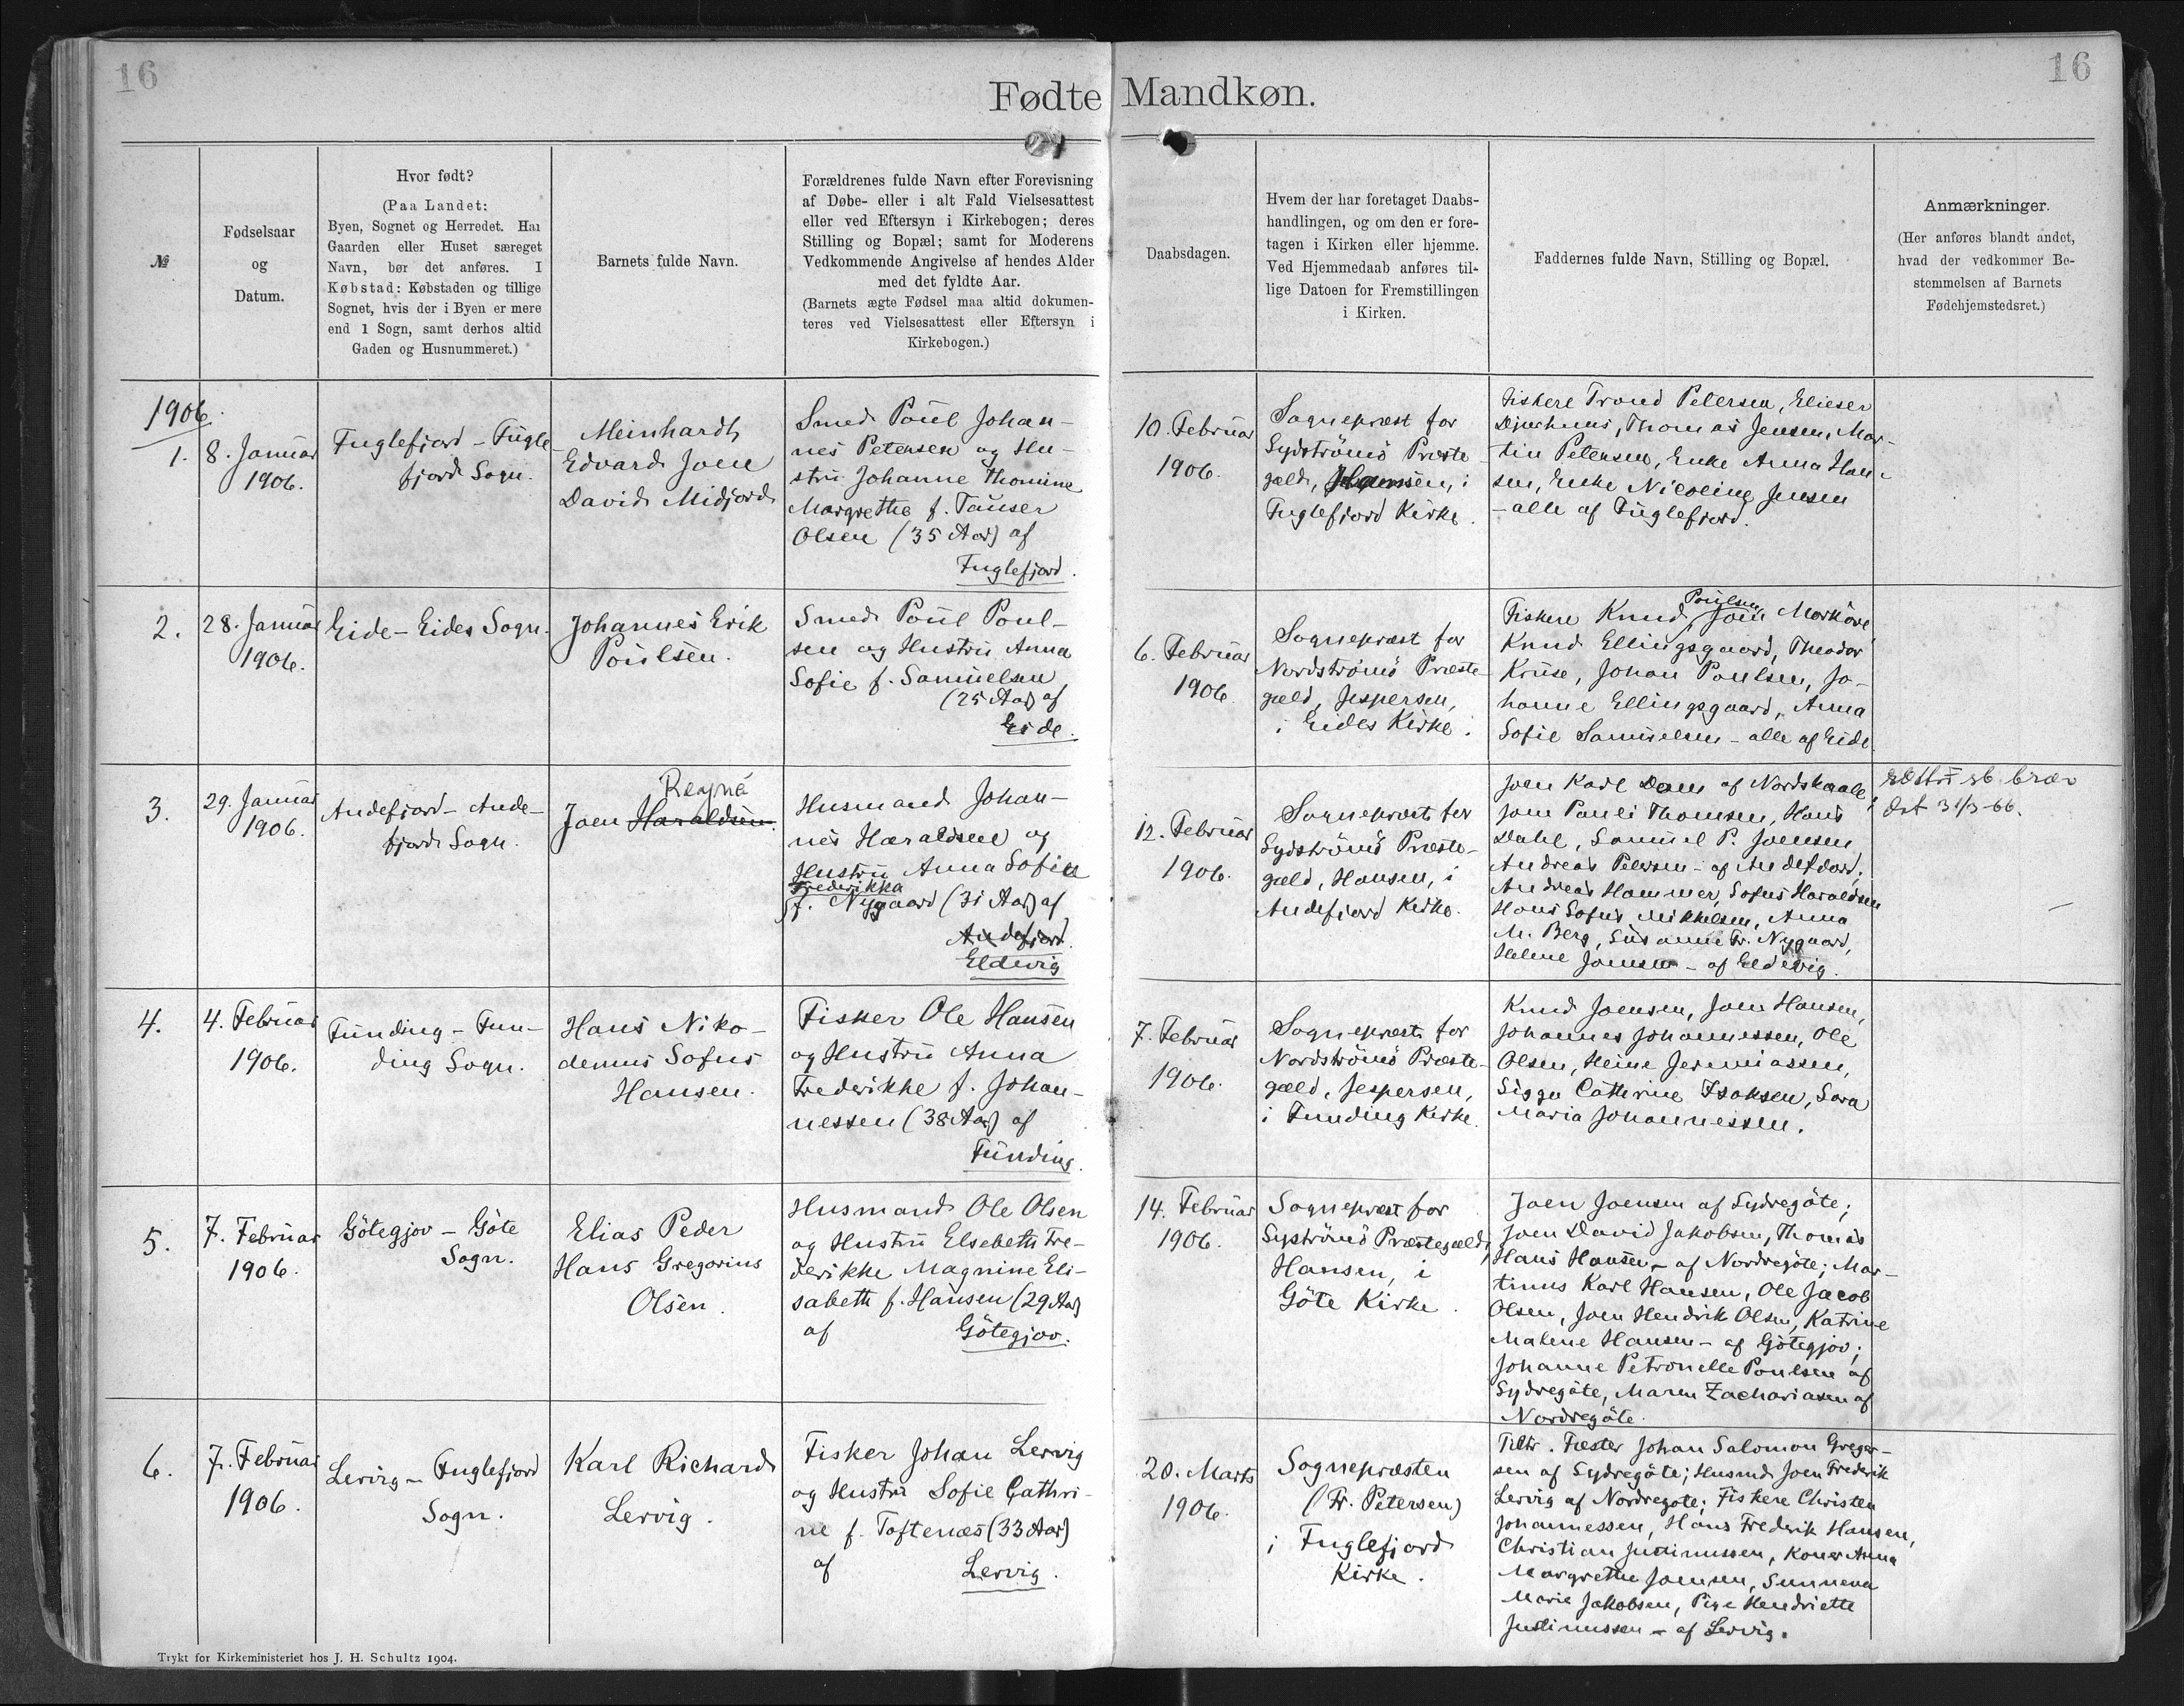 16
16
Fødte Mandkøn.
№
Fødselsaar
og
Datum.
Hvor født?
(Paa Landet:
Byen, Sognet og Herredet. Har
Gaarden eller Huset særeget
Navn, bør det anføres. I
Købstad: Købstaden og tillige
Sognet, hvis der i Byen er mere
end 1 Sogn, samt derhos altid
Gaden og Husnummeret.)
Barnets fulde Navn.
Forældrenes fulde Navn efter Forevisning
af Døbe- eller i alt Fald Vielsesattest
eller ved Eftersyn i Kirkebogen; deres
Stilling og Bopæl; samt for Moderens
Vedkommende Angivelse af hendes Alder
med det fyldte Aar.
(Barnets ægte Fødsel maa altid dokumen-
teres ved Vielsesattest eller Eftersyn i
Kirkebogen.)
Daabsdagen.
Hvem der har foretaget Daabs-
handlingen, og om den er fore-
tagen i Kirken eller hjemme.
Ved Hjemmedaab anføres til-
lige Datoen for Fremstillingen
i Kirken.
Faddernes fulde Navn, Stilling og Bopæl.
Anmærkninger.
(Her anføres blandt andet,
hvad der vedkommer Be-
stemmelsen af Barnets
Fødehjemstedsret.)
1906.
1.
8. Januar
1906.
Fuglefjord - Fugle-
fjord Sogn.
Meinhardt
Edvard Joen
David Midjord
Smed Poul Johan-
nes Petersen og Hu-
stru Johanne Thomine
Margrethe f. Tauser
Olsen (35 Aar) af
Fuglefjord.
10. Februar
1906.
Sognepræst for
Sydströmö Præste-
gæld, Hansen, i
Fuglefjord Kirke.
Fiskere Trond Petersen, Elieser
Djurhuus, Thomas Jensen, Mar-
tin Petersen, Enke Anna Han-
sen, Enke Nicoline Jensen
- alle af Fuglefjord.
2.
28. Januar
1906.
Eide - Eides Sogn.
Johannes Erik
Poulsen.
Smed Poul Poul-
sen og Hustru Anna
Sofie f. Samuelsen
(25 Aar) af
Eide.
6. Februar
1906.
Sognepræst for
Nordströmö Præste-
gæld, Jespersen,
i Eides Kirke.
Poulsen
Fiskere Knud, Joen Morköre
Knud Ellingsgaard, Theodor
Kruse, Johan Poulsen, Jo-
hanne Ellingsgaard, Anna
Sofie Samuelsen - alle af Eide
3.
29. Januar
1906.
Andefjord - Ande-
fjord Sogn.
Reyná
Joen Haraldsen.
Husmand Johan-
nes Haraldsen og
Hustru Anna Sofie
Frederikka
f. Nygaard (31 Aar) af
Andefjord.
Eldevig
12. Februar
1906.
Sognepræst for
Sydströmö Præste-
gæld, Hansen, i
Andefjord Kirke.
Joen Karl Dam af Nordskaale,
Joen Pauli Thomsen, Hans
Dahl, Samuel P. Joensen
Andreas Petersen - af Andefjord;
Andreas Hammer, Sofus Haraldsen
Hans Sofus Mikkelsen, Anna
M. Berg, Susanne Fr. Nygaard,
Helene Joensen - af Eldevig.
brev
31/3-66.
4.
4. Februar
1906.
Funding - Fun-
ding Sogn.
Hans Niko-
demus Sofus
Hansen.
Fisker Ole Hansen
og Hustru Anna
Frederikke f. Johan-
nessen (38 Aar) af
Funding.
7. Februar
1906.
Sognepræst for
Nordströmö Præste-
gæld, Jespersen,
i Funding Kirke.
Knud Joensen, Joen Hansen,
Johannes Johannessen, Ole
Olsen, Heine Jermiassen,
Sigga Cathrine Isaksen, Sara
Maria Johannessen.
5.
7. Februar
1906.
Götegjov - Göte
Sogn.
Elias Peder
Hans Gregorius
Olsen.
Husmand Ole Olsen
og Hustru Elsebeth Fre-
derikke Magnine Eli-
sabeth f. Hansen (29 Aar)
af Götegjov.
14. Februar
1906.
Sognepræst for
Syströmö Præstegæld,
Hansen, i
Göte Kirke.
Joen Joensen af Sydregöte;
Joen David Jakobsen, Thomas
Hans Hansen - af Nordregöte; Mar-
tinus Karl Hansen, Ole Jacob
Olsen, Joen Hendrik Olsen, Katrine
Malene Hansen - af Götegjov;
Johanne Petronelle Poulsen af
Sydregöte, Maren Zachariasen af
Nordregöte.
6.
7. Februar
1906.
Lervig - Fuglefjord
Sogn.
Karl Richard
Lervig.
Fisker Johan Lervig
og Hustru Sofie Cathri-
ne f. Toftenæs (33 Aar)
af Lervig.
20. Marts
1906.
Sognepræsten
(Fr. Petersen)
i Fuglefjord
Kirke.
Fæster Johan Salomon Greger-
sen af Sydregöte; Husmd. Joen Frederik
Lervig af Nordregöte; Fiskere Christen
Johannessen, Hans Frederik Hansen,
Christian Justinussen, Koner Anna
Margrethe Joensen, Sunneva
Marie Jakobsen, Pige Hendriette
Justinussen - af Lervig.
Trykt for Kirkeministeriet hos J. H. Schultz 1904.